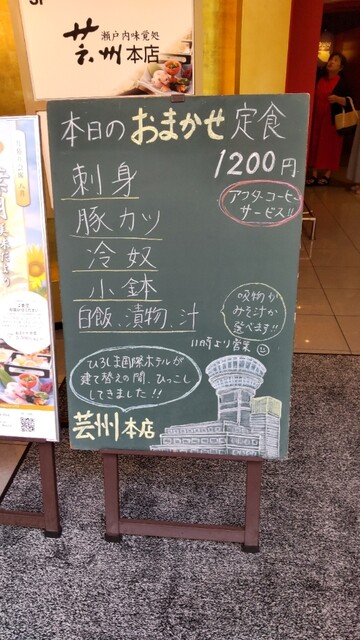 瀬戸内味覚処
芸州本店
本日のおまかせ定食
1200円
アフターコーヒー
サービス!!
刺身
豚カツ
冷奴
小鉢
白飯、漬物、汁
吸物か
みそ汁か
選べます!!
11時より営業
ひろしま国際ホテルが
建て替えの間、ひっこし
してきました!!
芸州本店